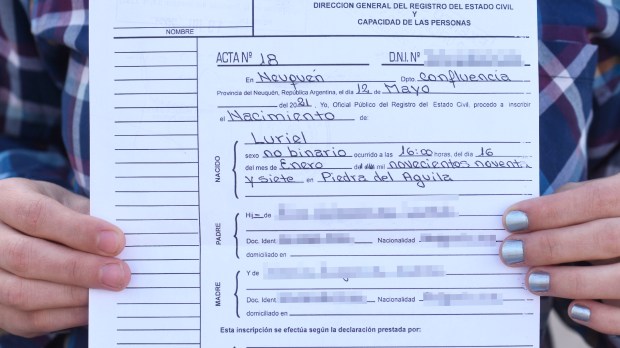 DIRECCION GENERAL DEL REGISTRO DEL ESTADO CIVIL
Y
CAPACIDAD DE LAS PERSONAS
NOMBRE
ACTA Nº 18 D.N.I. Nº
En Neuquén Dpto Confluencia
Provincia del Neuquén, República Argentina, el día 12 de Mayo
del 2021, Yo, Oficial Público del Registro del Estado Civil, procedo a inscribir
el Nacimiento de:
Luriel
sexo no binario ocurrido a las 16:00 horas, del día 16
del mes de Enero del mil novecientos noventi
y siete en Piedra del Aguila
NACIDO
Hij de
Doc. Ident Nacionalidad
domiciliado en
PADRE
Y de
Doc. Ident Nacionalidad
domiciliado en
MADRE
Esta inscripción se efectúa según la declaración prestada por: